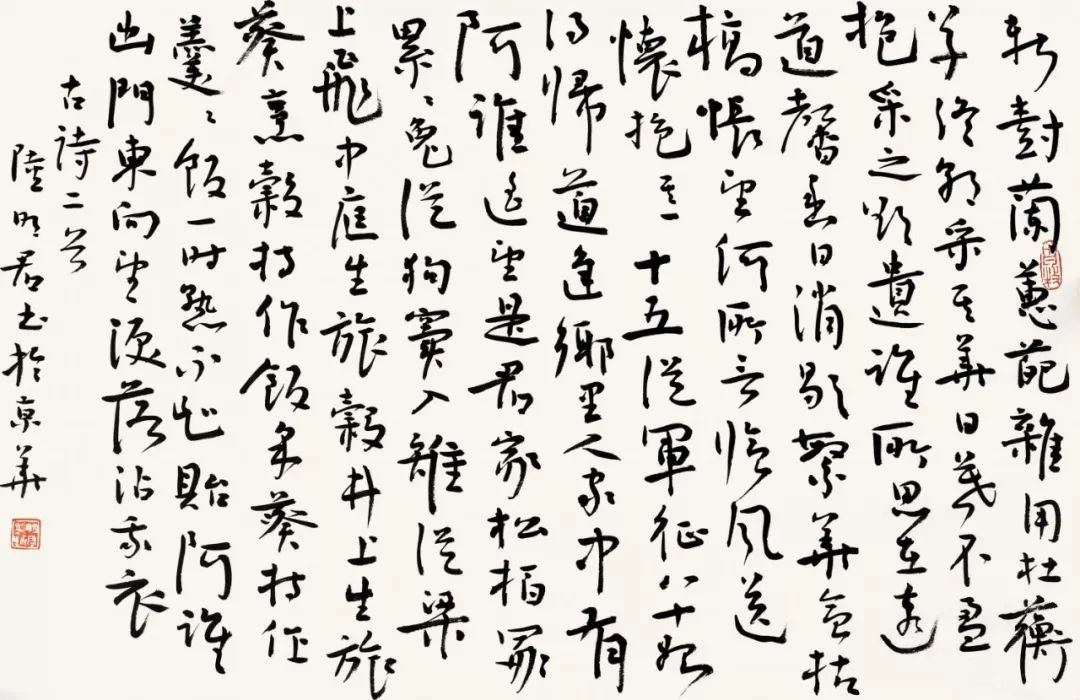 新尌蘭蕙葩雜用杜蘅
草終朝采其華日暮不盈
抱采之欲遺誰所思在遠
道馨香日消歇繁華會枯
槁悵望何所言臨風送
懷抱其一十五從軍征八十始
得歸道逢鄉里人家中有
阿誰遙望是君家松柏冢
累々兔從狗竇入雉從梁
上飛中庭生旅穀井上生旅
葵烹穀持作飯采葵持作
羹々飯一時熟不知貽阿誰
出門東向望淚落沾我衣
古詩二首
陸明君書於京華